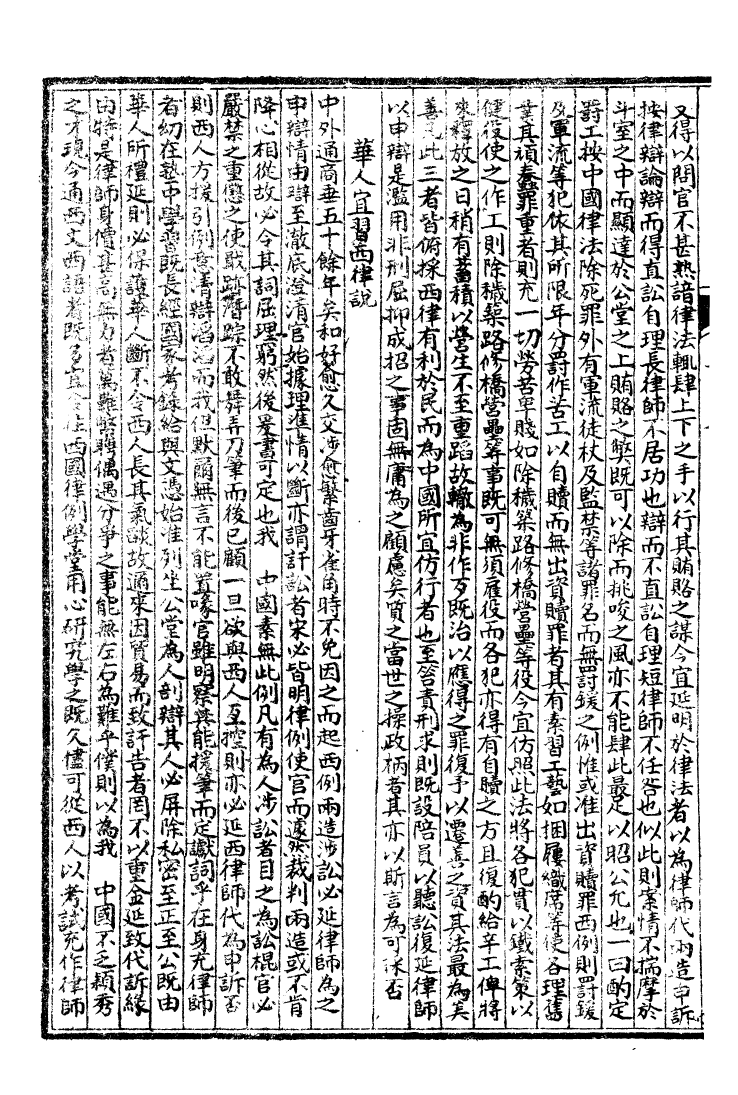 又得以問官不甚熟諳律法輒肆上下之手以行其賄賂之謀今宜延明於律法者以為律師代兩造申訴
按律辯論辯而得直訟自理長律師不居功也辯而不直訟自理短律師不任咎也似此則案情不揣摩於
斗室之中而顯達於公堂之上賄賂之弊既可以除而挑唆之風亦不能肆此最足以昭公允也一曰酌定
罰工按中國律法除死罪外有軍流徒杖及監禁等諸罪名而無罰鍰之例惟或准出資贖罪西例則罰鍰
及軍流等犯依其所限年分罰作苦工以自贖而無出資贖罪者其有素習工藝如捆屨織席等使各理舊
業其頑蠢罪重者則充一切勞苦卑賤如除穢築路修橋營壘等役今宜仿照此法將各犯貫以鐵索策以
健役使之作工則除穢築路修橋營壘等事既可無須雇役而各犯亦得有自贖之方且復酌給辛工俾將
來釋放之日稍有蓄積以營生不至重蹈故轍為非作歹既治以應得之罪復予以遷善之資其法最為美
善凡此三者皆俯採西律有利於民而為中國所宜仿行者也至笞責刑求則既設陪員以聽訟復延律師
以申辯是濫用非刑屈抑成招之事固無庸為之顧慮矣質之當世之操政柄者其亦以斯言為可採否
華人宜習西律說
中外通商垂五十餘年矣和好愈久交涉愈繁齒牙雀角時不免因之而起西例兩造涉訟必延律師為之
申辯情由辯至澈底澄清官始據理準情以斷亦謂訐訟者宋必皆明律例使官而遽然裁判兩造或不肯
降心相從故必令其詞屈理窮然後爰書可定也我 中國素無此例凡有為人涉訟者目之為訟棍官必
嚴禁之重懲之使戢跡潛踪不敢舞弄刀筆而後已顧一旦欲與西人互控則亦必延西律師代為申訴否
則西人方援引例意清辯滔滔而我但默爾無言不能置喙官雖明察其能援筆而定讞詞乎在身充律師
者幼在塾中學習既長經國家考錄給與文憑始准列坐公堂為人剖辯其人必屏除私密至正至公既由
華人所禮延則必保護華人斷不令西人長其氣燄故邇來因貿易而致訐告者罔不以重金延致代訴緣
由特是律師身價甚高無力者萬難幣聘偶遇分爭之事能無左右為難乎僕則以為我 中國不乏穎秀
之才現今通西文西語者既多宜令往西國律例學堂用心研究學之既久儘可從西人以考試充作律師